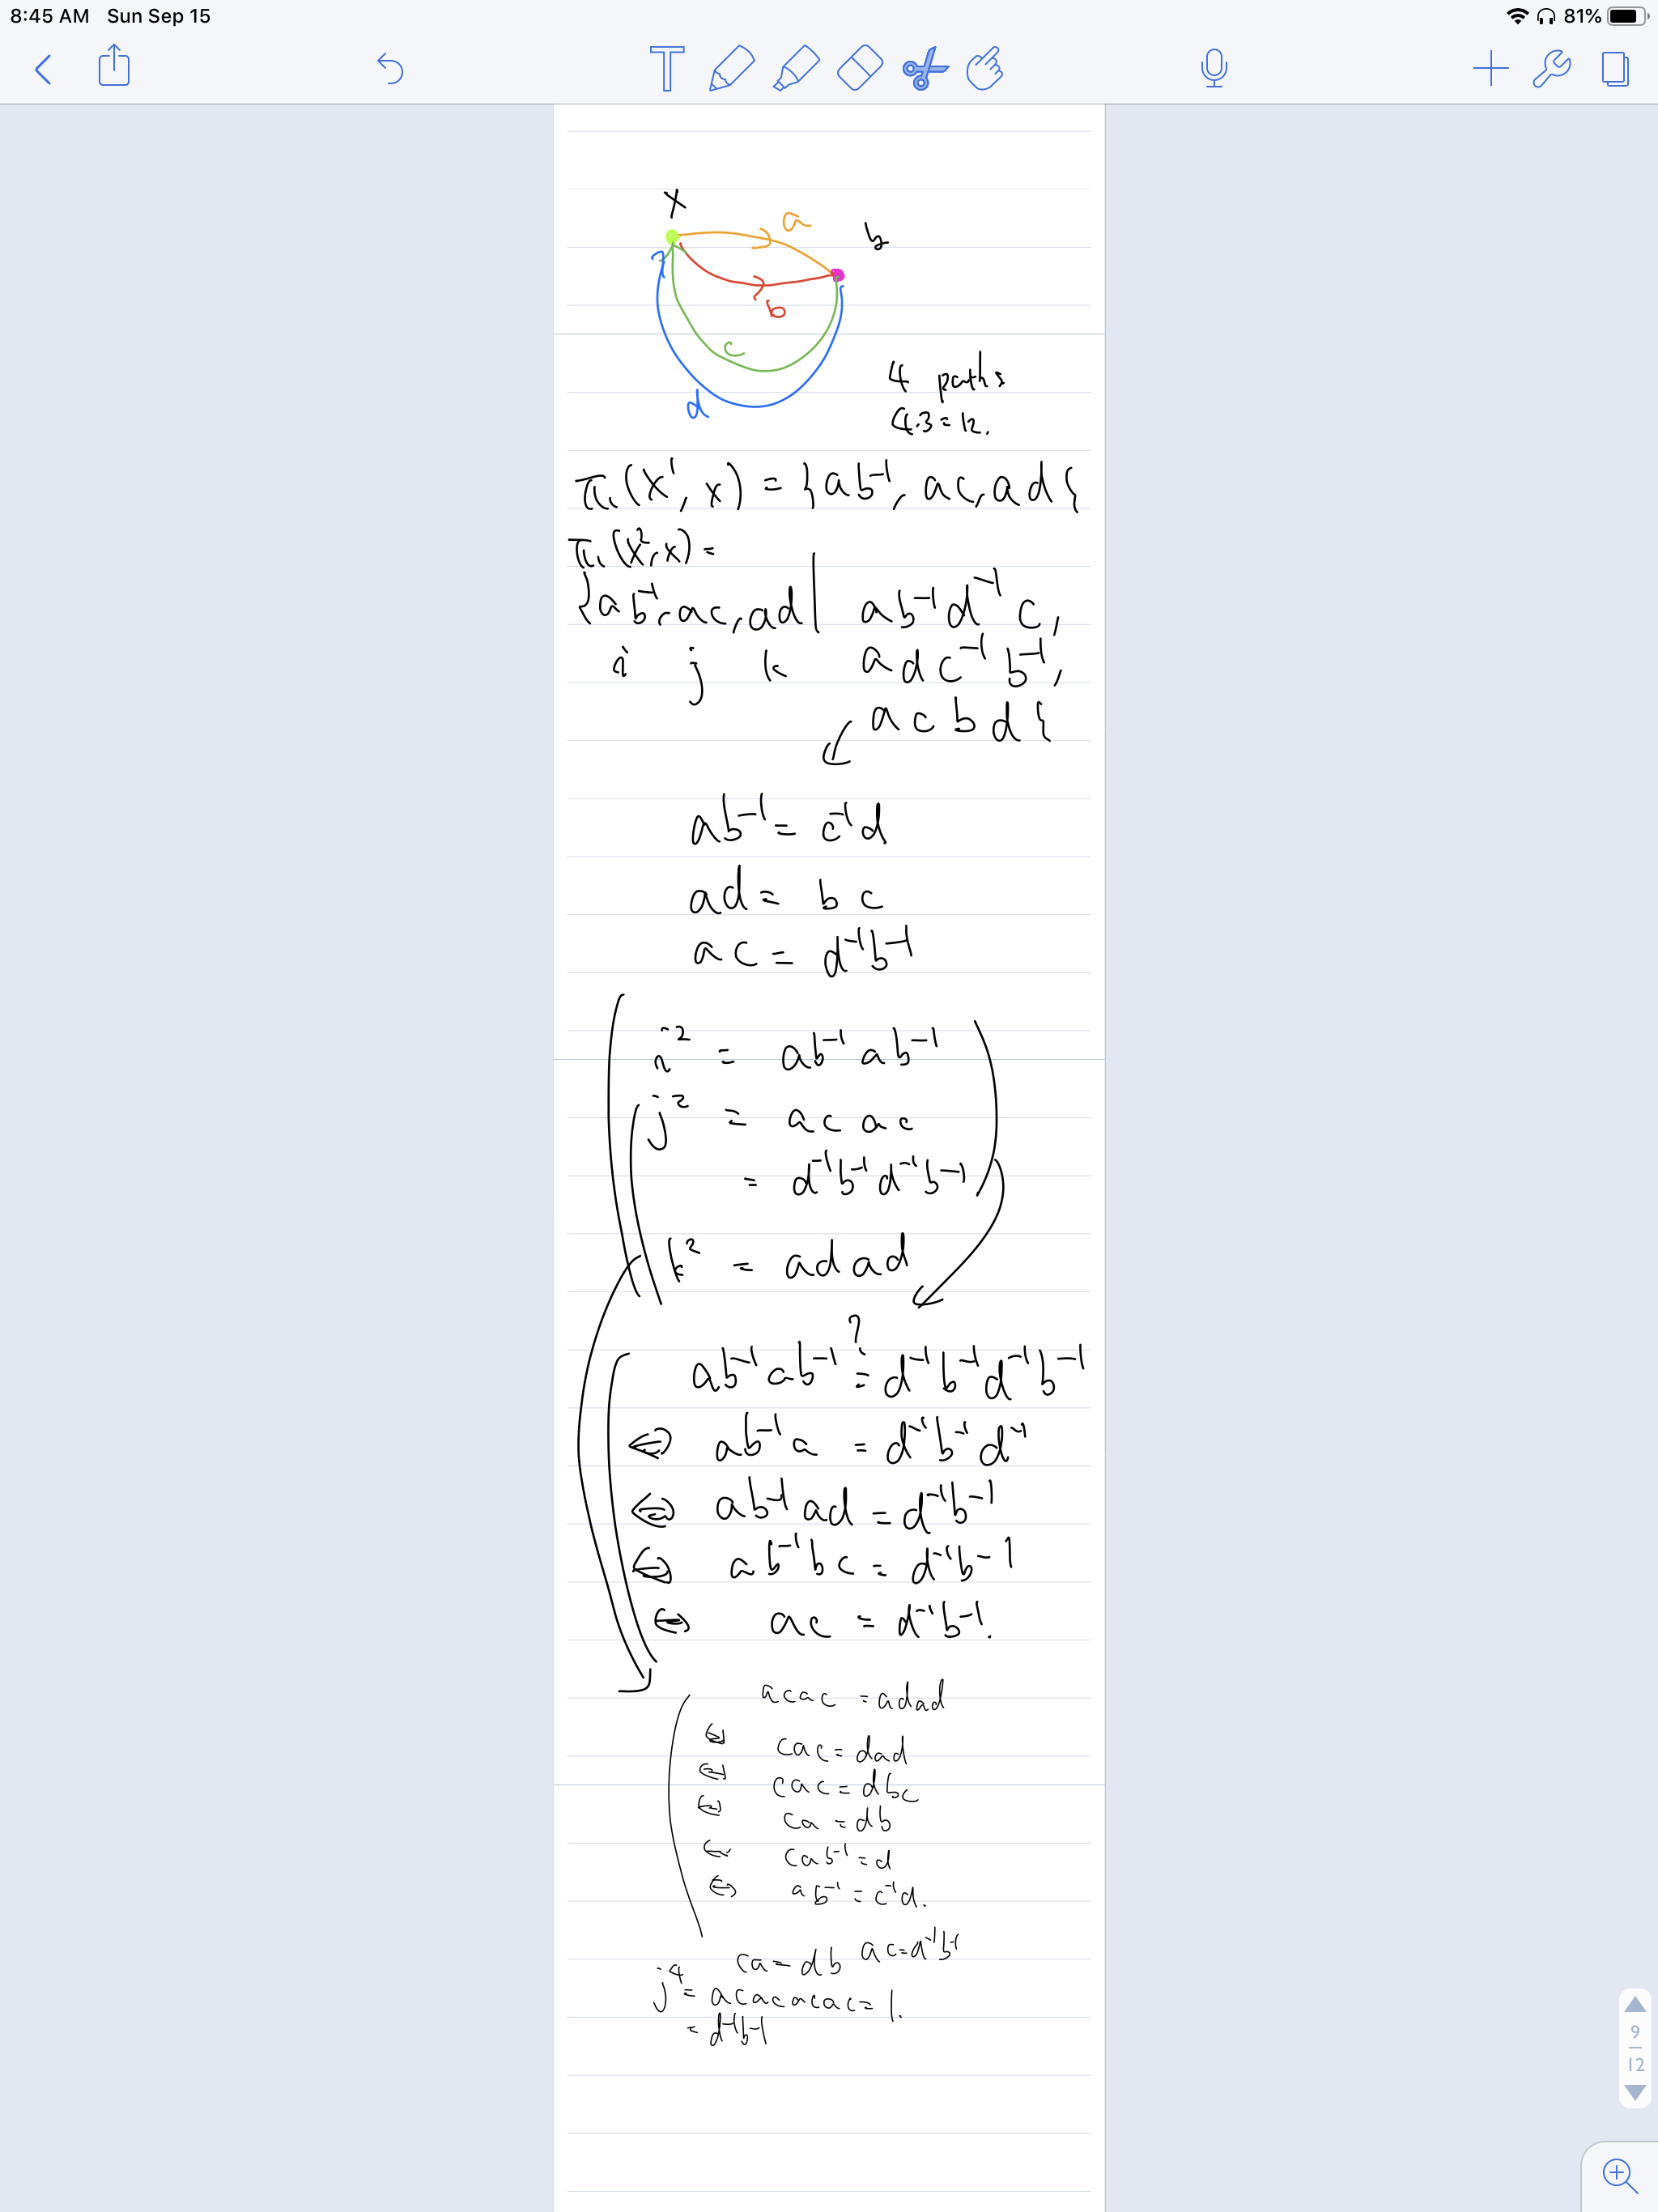 8:45 AM Sun Sep 15
81%
x
a
y
b
c
d
4 paths
4·3=12.
π₁(X¹, x) = {ab⁻¹, ac, ad}
π₁(X², x) =
{ab⁻¹, ac, ad | ab⁻¹d⁻¹c,
i j k adc⁻¹b⁻¹,
acbd}
ab⁻¹ = c⁻¹d
ad = bc
ac = d⁻¹b⁻¹
i² = ab⁻¹ab⁻¹
j² = acac
= d⁻¹b⁻¹d⁻¹b⁻¹
k² = adad
ab⁻¹ab⁻¹ ?= d⁻¹b⁻¹d⁻¹b⁻¹
⇔ ab⁻¹a = d⁻¹b⁻¹d⁻¹
⇔ ab⁻¹ad = d⁻¹b⁻¹
⇔ ab⁻¹bc = d⁻¹b⁻¹
⇔ ac = d⁻¹b⁻¹.
acac = adad
⇔ cac = dad
⇔ cac = dbc
⇔ ca = db
⇔ cab⁻¹ = d
⇔ ab⁻¹ = c⁻¹d.
ca = db ac = d⁻¹b⁻¹
j⁴ = acacacac = 1.
= d⁻¹b⁻¹
9
12